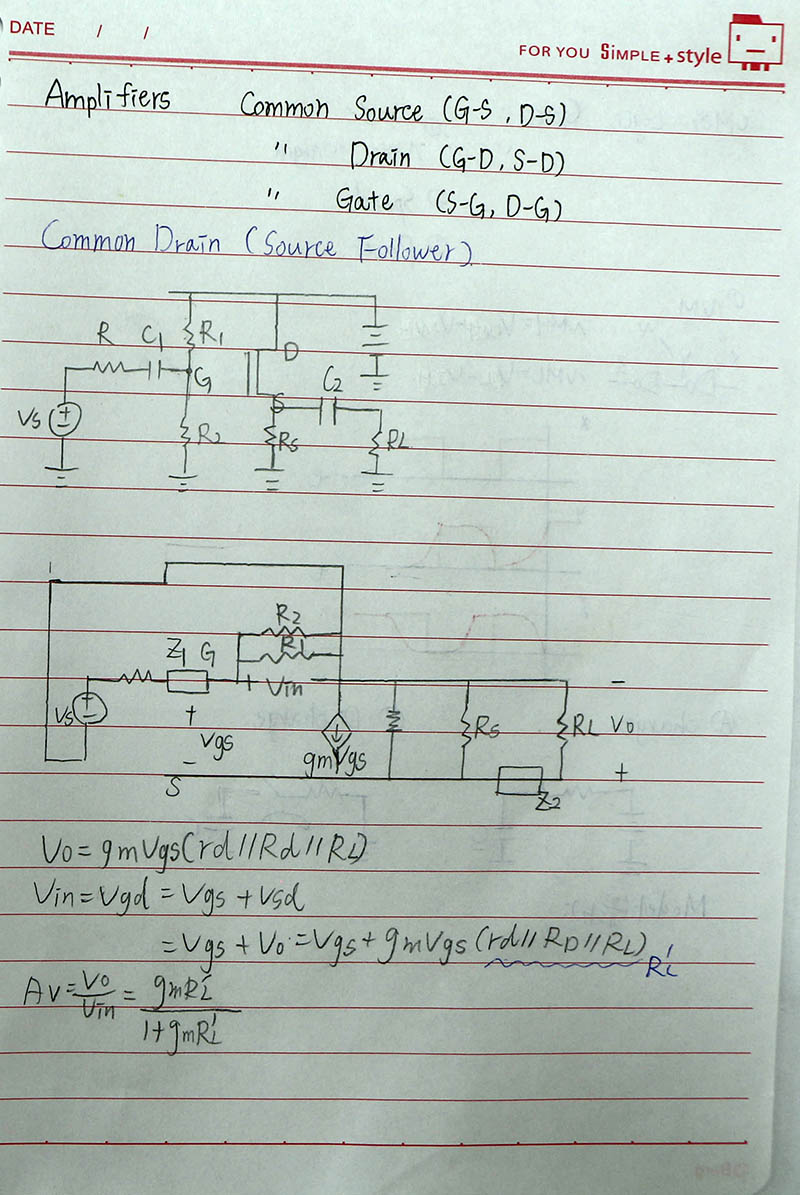 DATE / /
FOR YOU SiMPLE+style
Amplifiers Common Source (G-S, D-S)
" Drain (G-D, S-D)
" Gate (S-G, D-G)
Common Drain (Source Follower)
R C1 R1 D
G C2
Vs S
R2 Rs RL
R2
Z1 G R1
+ Vin -
Vs + Rs RL Vo
Vgs gmVgs
- +
S Z2
Vo = gmVgs(rd//Rd//RL)
Vin = Vgd = Vgs + Vsd
= Vgs + Vo = Vgs + gmVgs (rd//RD//RL) RL'
Av = Vo/Vin = gmRL'/1+gmRL'